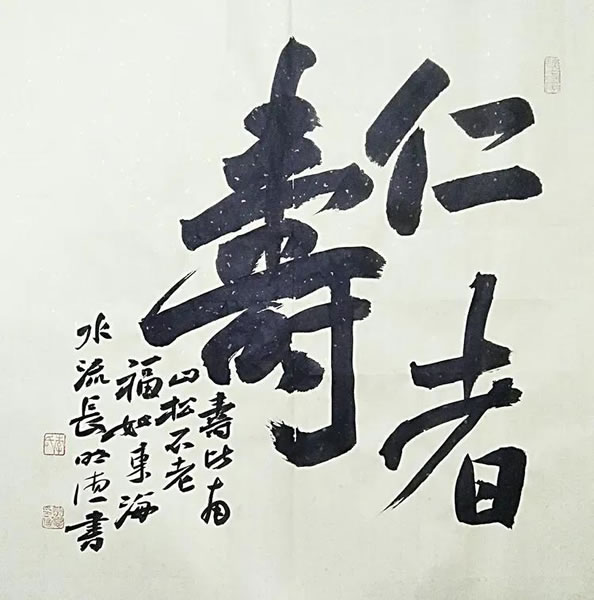 仁者
壽
壽比南
山松不老
福如東海
水流長明德書